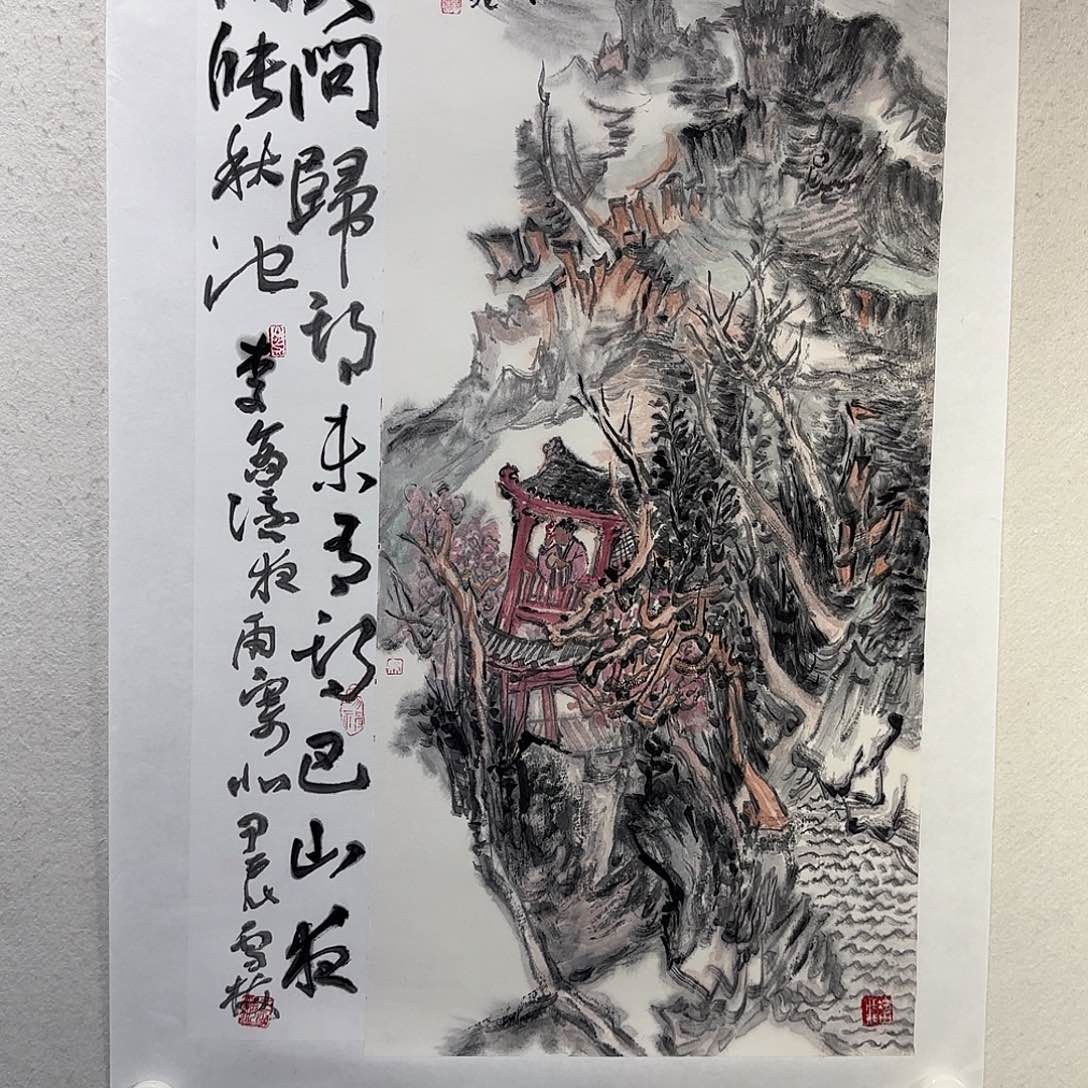 問歸期未有期巴山夜
漲秋池
李商隱夜雨寄北甲辰雪梅